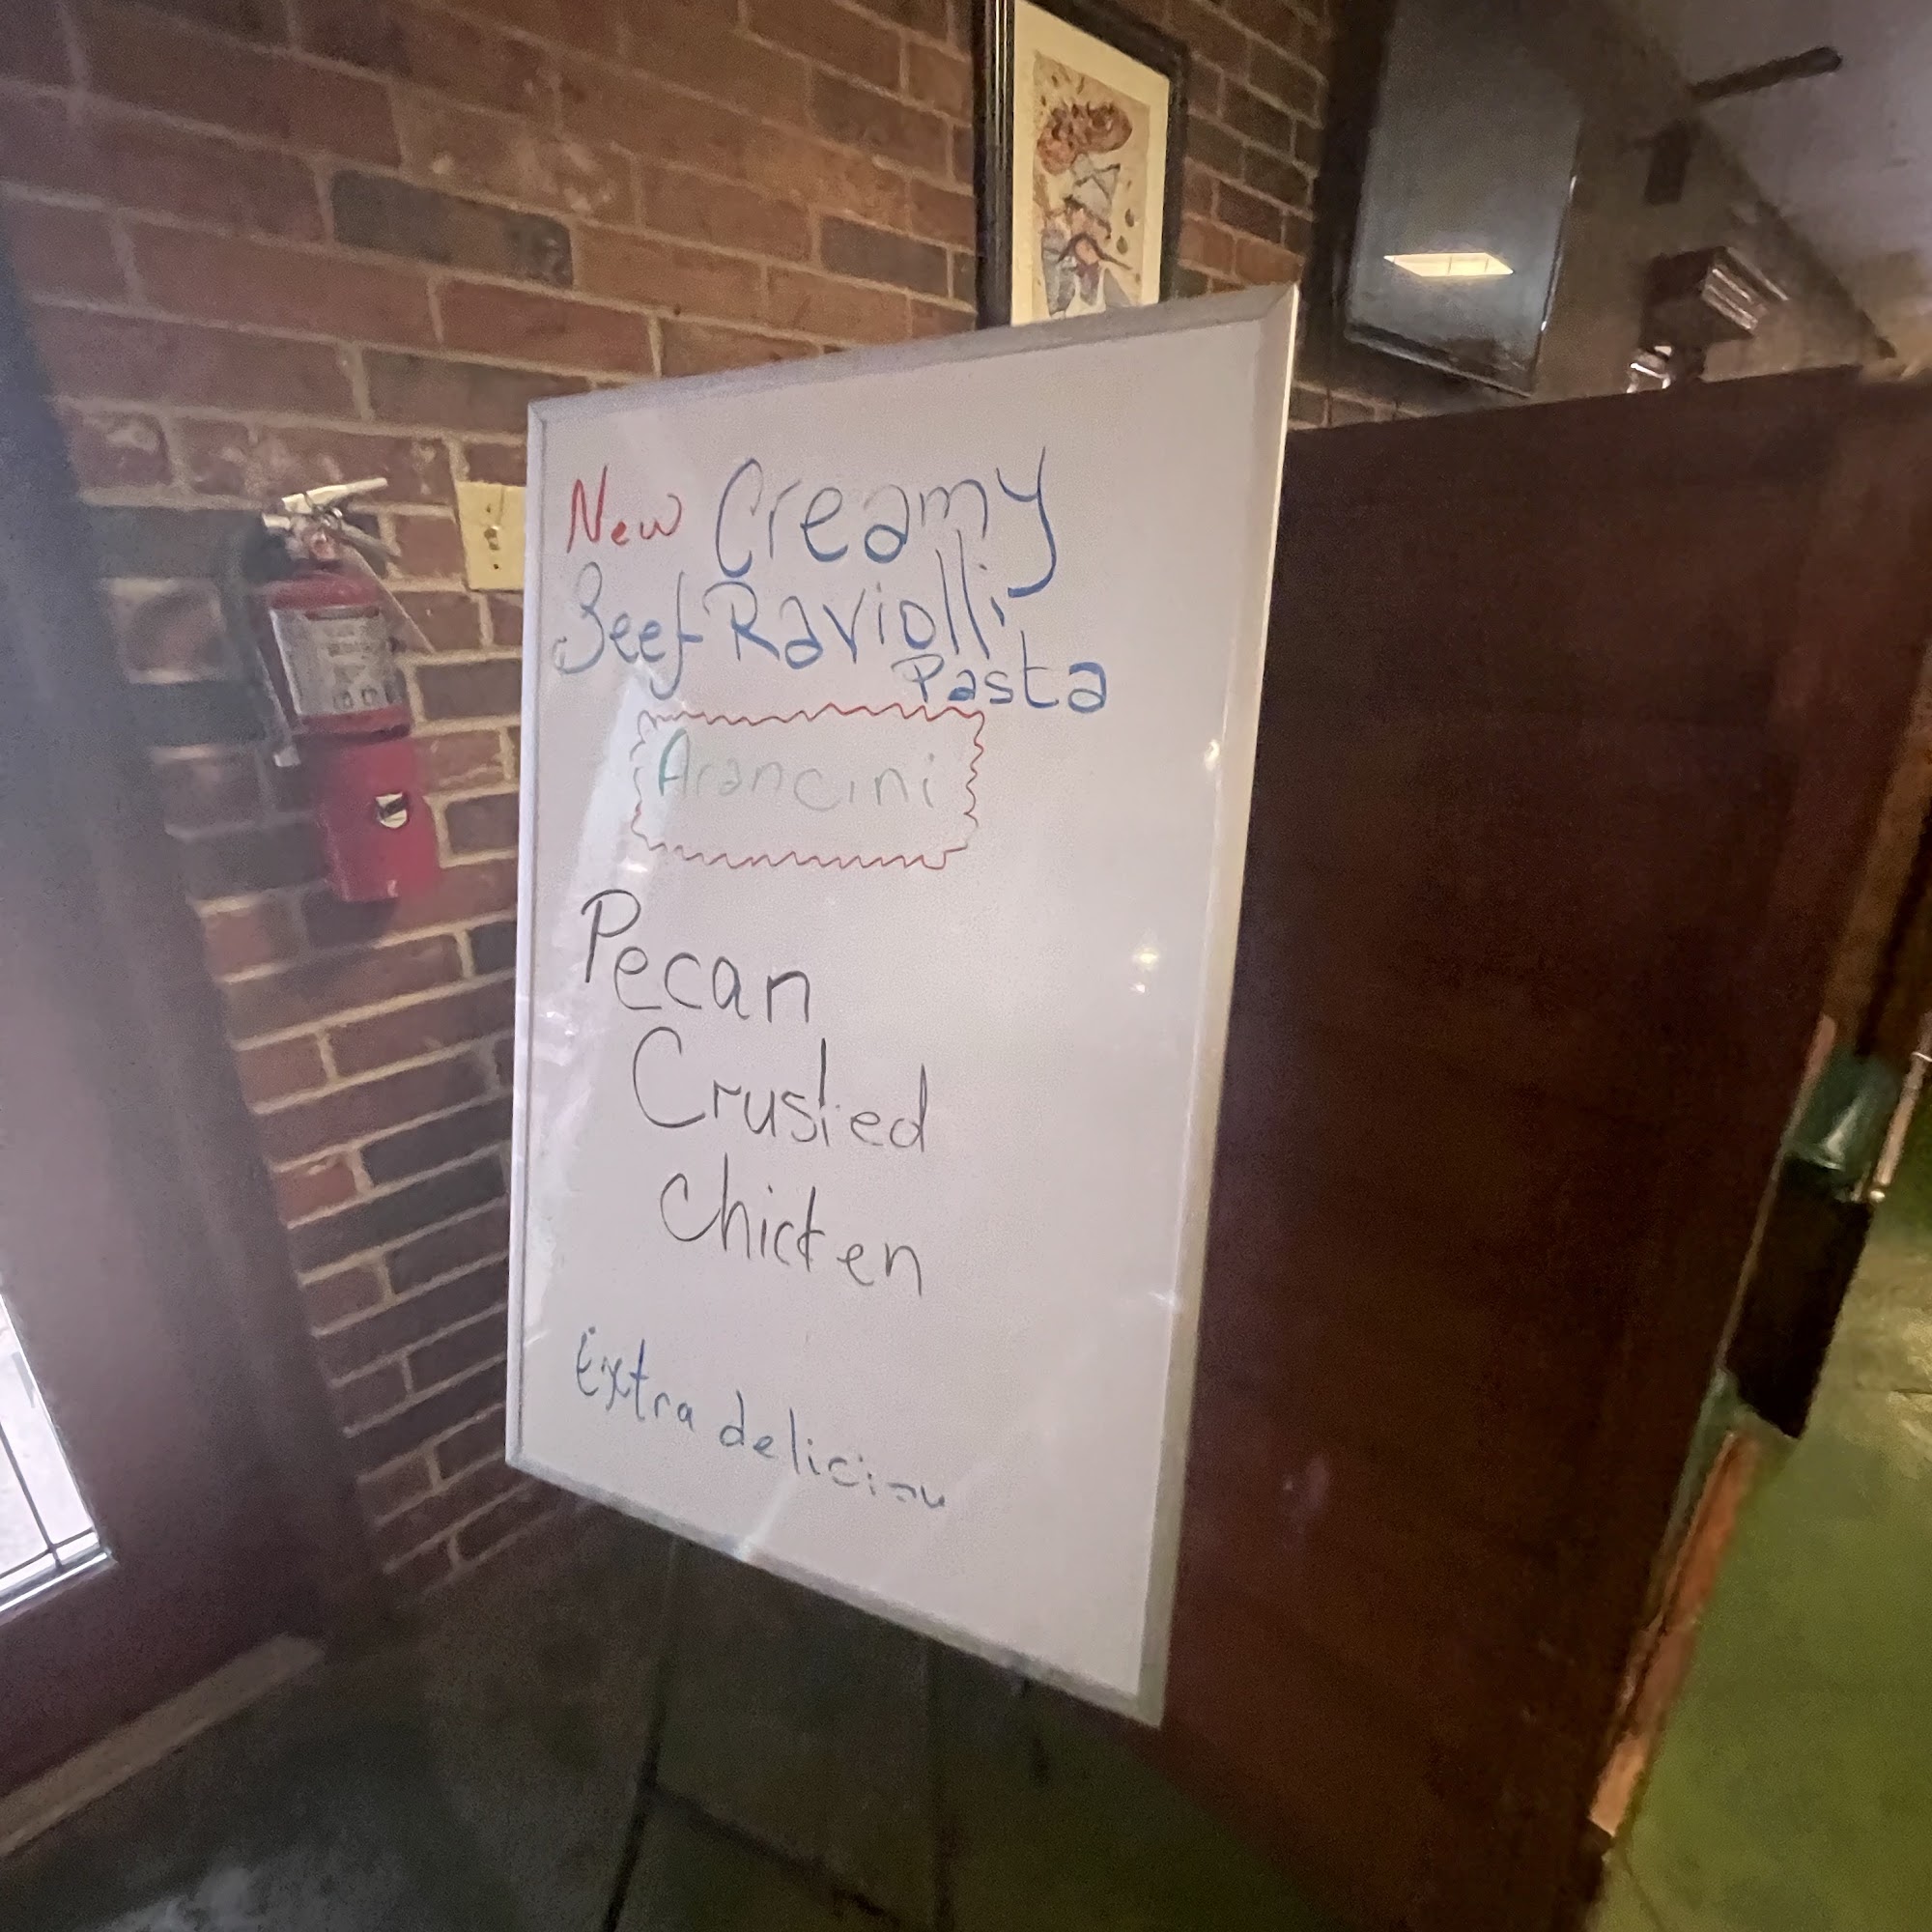 New Creamy
Beef Raviolli
Pasta
Arancini
Pecan
Crusted
Chicken
Extra deliciou